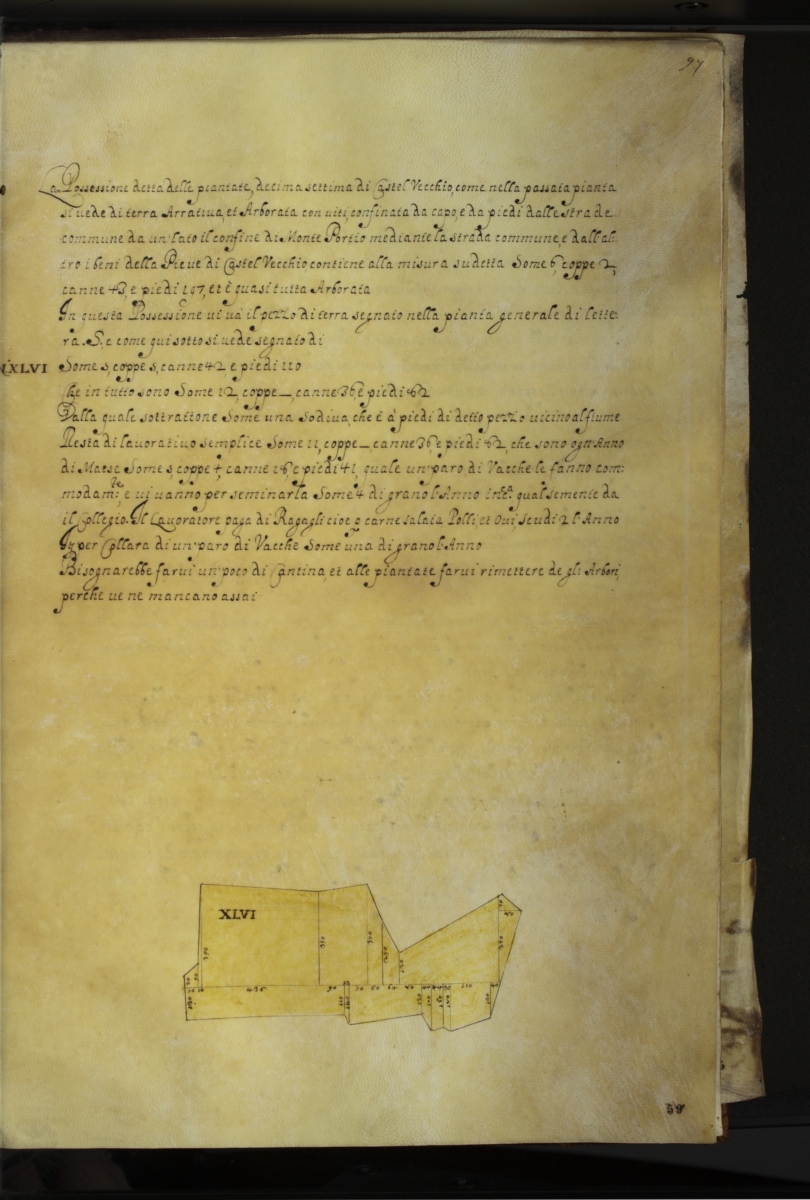 97
La Possessione detta delle piantate, decima settima di Castel Vecchio, come nella passata pianta
si uede di terra Arratiua, et Arborata con uiti, confinata da capo, e da piedi dalle strade
commune da un lato il confine di Monte Portio mediante la strada commune, e dall'al:
tro i beni della Pieue di Castel Vecchio contiene alla misura sudetta Some 6, coppe 2,
canne 43, e piedi 197, et è quasi tutta Arborata
In questa Possessione ui uà il pezzo di terra segnato nella pianta generale di lette:
ra .S. e come qui sotto si uede segnato di
XLVI Some 5, coppe 5, canne 42, e piedi 110
Che in tutto sono Some 12, coppe _, canne 36 e piedi 82
Dalla quale sottrattone Some una Sodiua, che è à piedi di detto pezzo uicino al fiume
Resta di lauoratiuo semplice Some 11, coppe _ canne 36 e piedi 82, che sono ogn'Anno
di Maese Some 5 coppe 4, canne 18 e piedi 41, quale un paro di Vacche le fanno com:
modam.te e ui uanno per seminarla Some 4 di grano l'Anno qual semente dà
il Collegio. Il Lauoratore paga di Ragagli cioe carne salata Polli, et Oui scudi 2 l'Anno
Et per Collara di un paro di Vacche Some una di grano l'Anno
Bisognarebbe farui un poco di Cantina, et alle piantate farui rimettere de gli Arbori,
perche ue ne mancano assai
XLVI
435
90
110
59